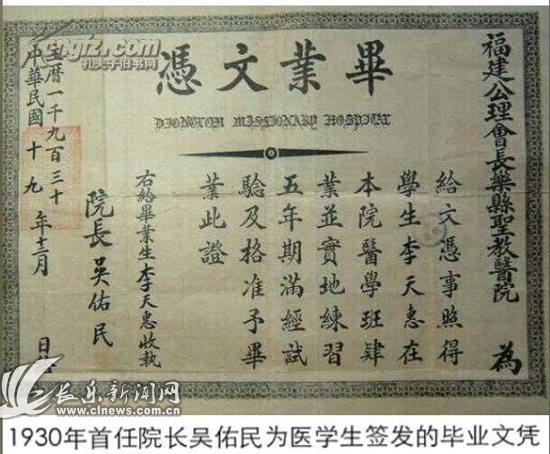 畢業文憑
DIONGLOH MISSIONARY HOSPITAL
福建公理會長樂縣聖教醫院 為
給文憑事照得
學生李天惠在
本院醫學班肄
業並實地練習
五年期滿經試
驗及格准予畢
業此證
右給畢業生李天惠收執
院長吳佑民
主曆一千九百三十
中華民國十九
年十二月 日
孔夫子旧书网
长乐新闻网
1930年首任院长吴佑民为医学生签发的毕业文凭